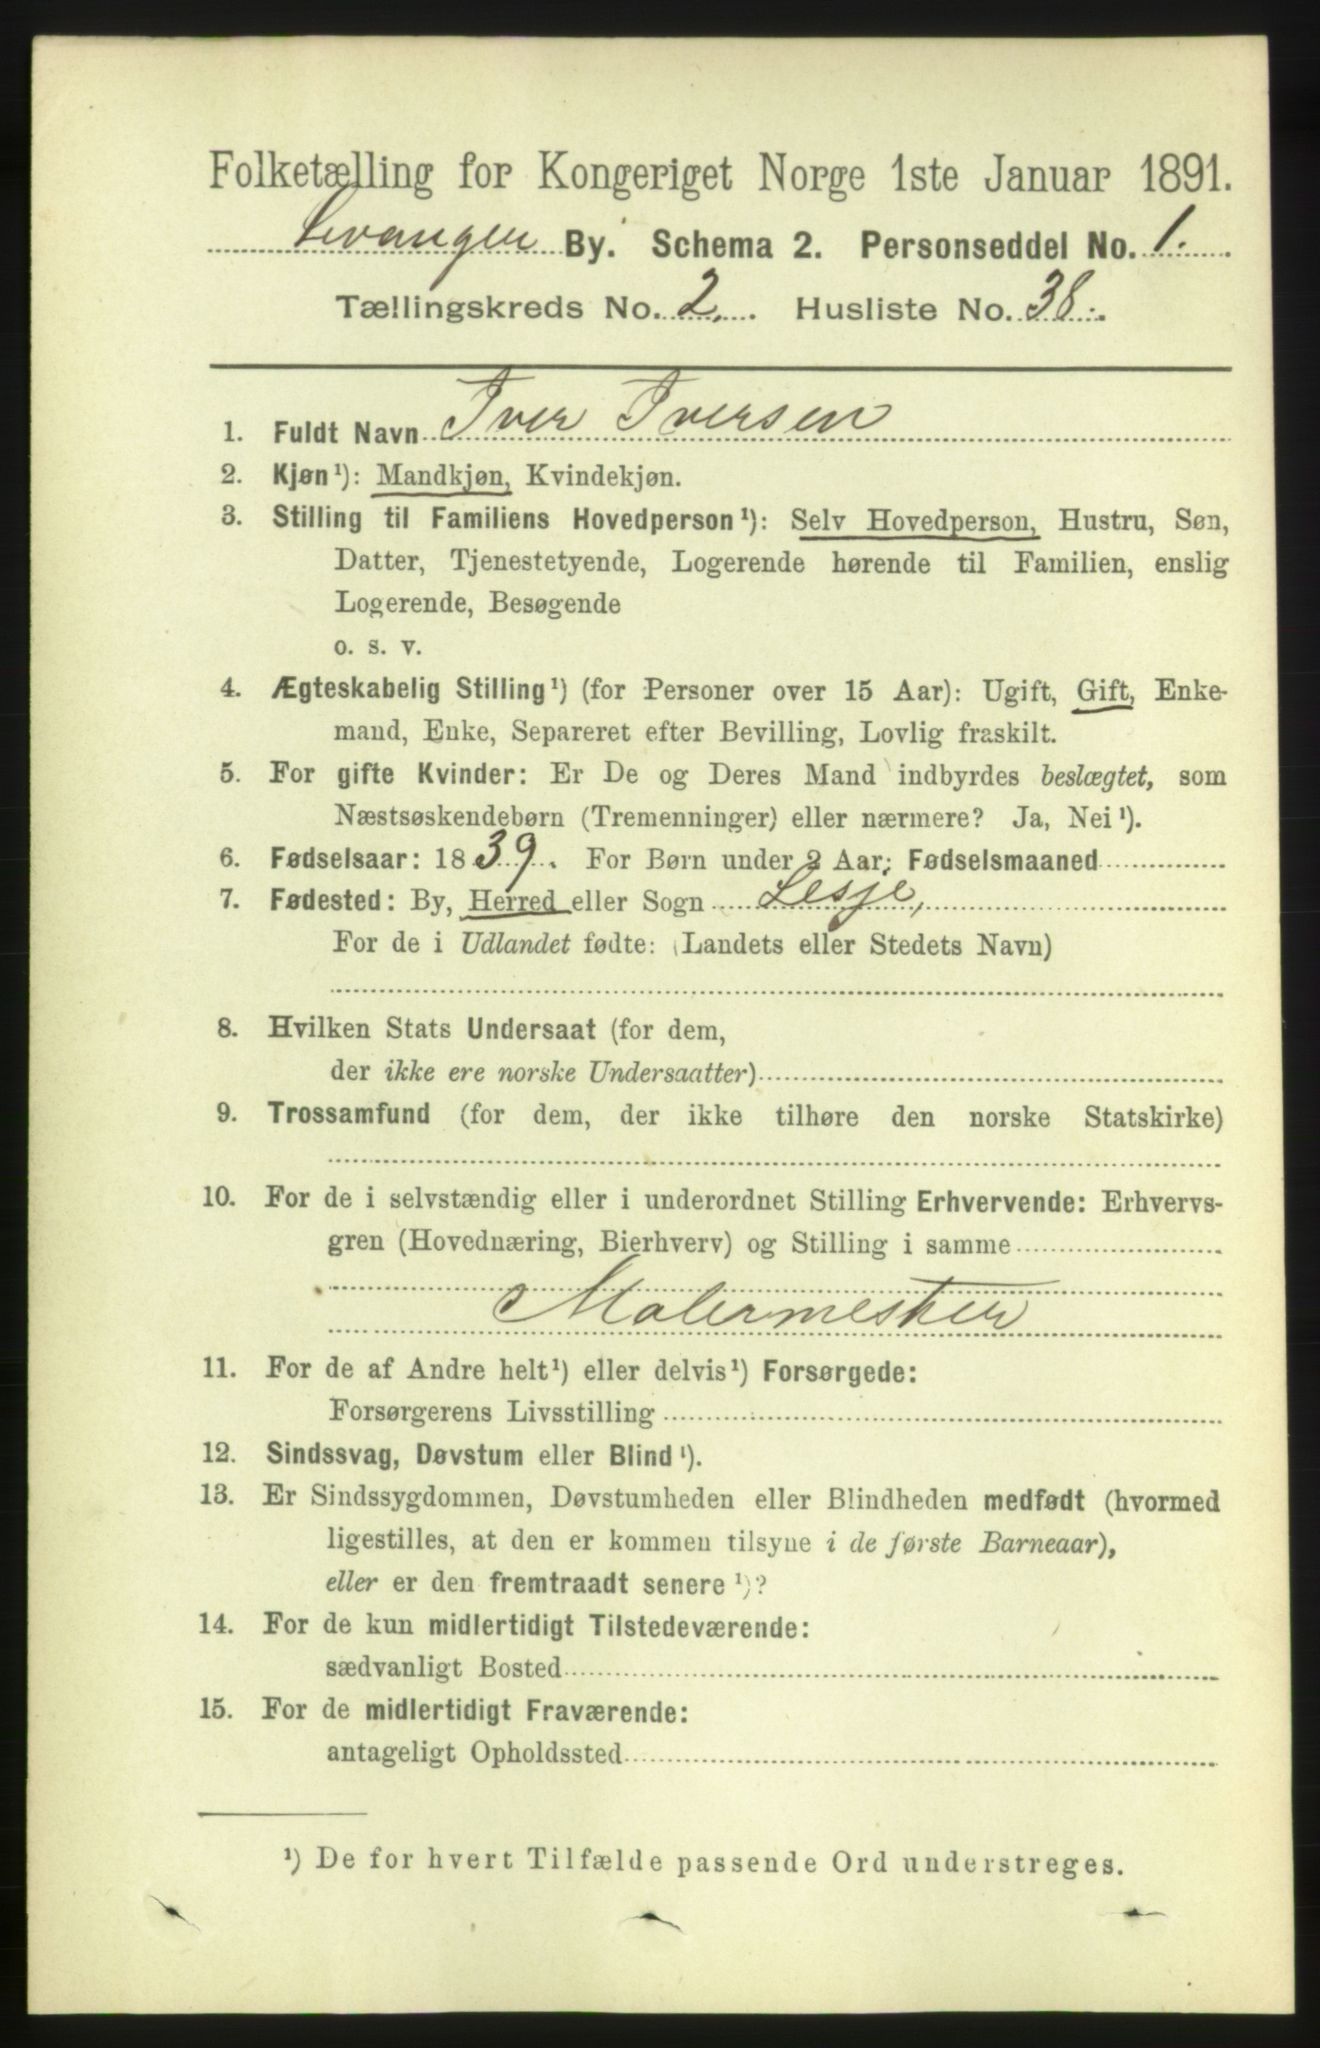 Folketælling for Kongeriget Norge 1ste Januar 1891.
Levangen By. Schema 2. Personseddel No. 1.
Tællingskreds No. 2. Husliste No. 38.
1. Fuldt Navn Iver Iversen
2. Kjøn¹): Mandkjøn, Kvindekjøn.
3. Stilling til Familiens Hovedperson¹): Selv Hovedperson, Hustru, Søn,
Datter, Tjenestetyende, Logerende hørende til Familien, enslig
Logerende, Besøgende
o. s. v.
4. Ægteskabelig Stilling¹) (for Personer over 15 Aar): Ugift, Gift, Enke-
mand, Enke, Separeret efter Bevilling, Lovlig fraskilt.
5. For gifte Kvinder: Er De og Deres Mand indbyrdes beslægtet, som
Næstsøskendebørn (Tremenninger) eller nærmere? Ja, Nei¹).
6. Fødselsaar: 1839. For Børn under 2 Aar: Fødselsmaaned
7. Fødested: By, Herred eller Sogn Lesje,
For de i Udlandet fødte: (Landets eller Stedets Navn)
8. Hvilken Stats Undersaat (for dem,
der ikke ere norske Undersaatter)
9. Trossamfund (for dem, der ikke tilhøre den norske Statskirke)
10. For de i selvstændig eller i underordnet Stilling Erhvervende: Erhvervs-
gren (Hovednæring, Bierhverv) og Stilling i samme
Malermester
11. For de af Andre helt¹) eller delvis¹) Forsørgede:
Forsørgerens Livsstilling
12. Sindssvag, Døvstum eller Blind¹).
13. Er Sindssygdommen, Døvstumheden eller Blindheden medfødt (hvormed
ligestilles, at den er kommen tilsyne i de første Barneaar),
eller er den fremtraadt senere¹)?
14. For de kun midlertidigt Tilstedeværende:
sædvanligt Bosted
15. For de midlertidigt Fraværende:
antageligt Opholdssted
¹) De for hvert Tilfælde passende Ord understreges.